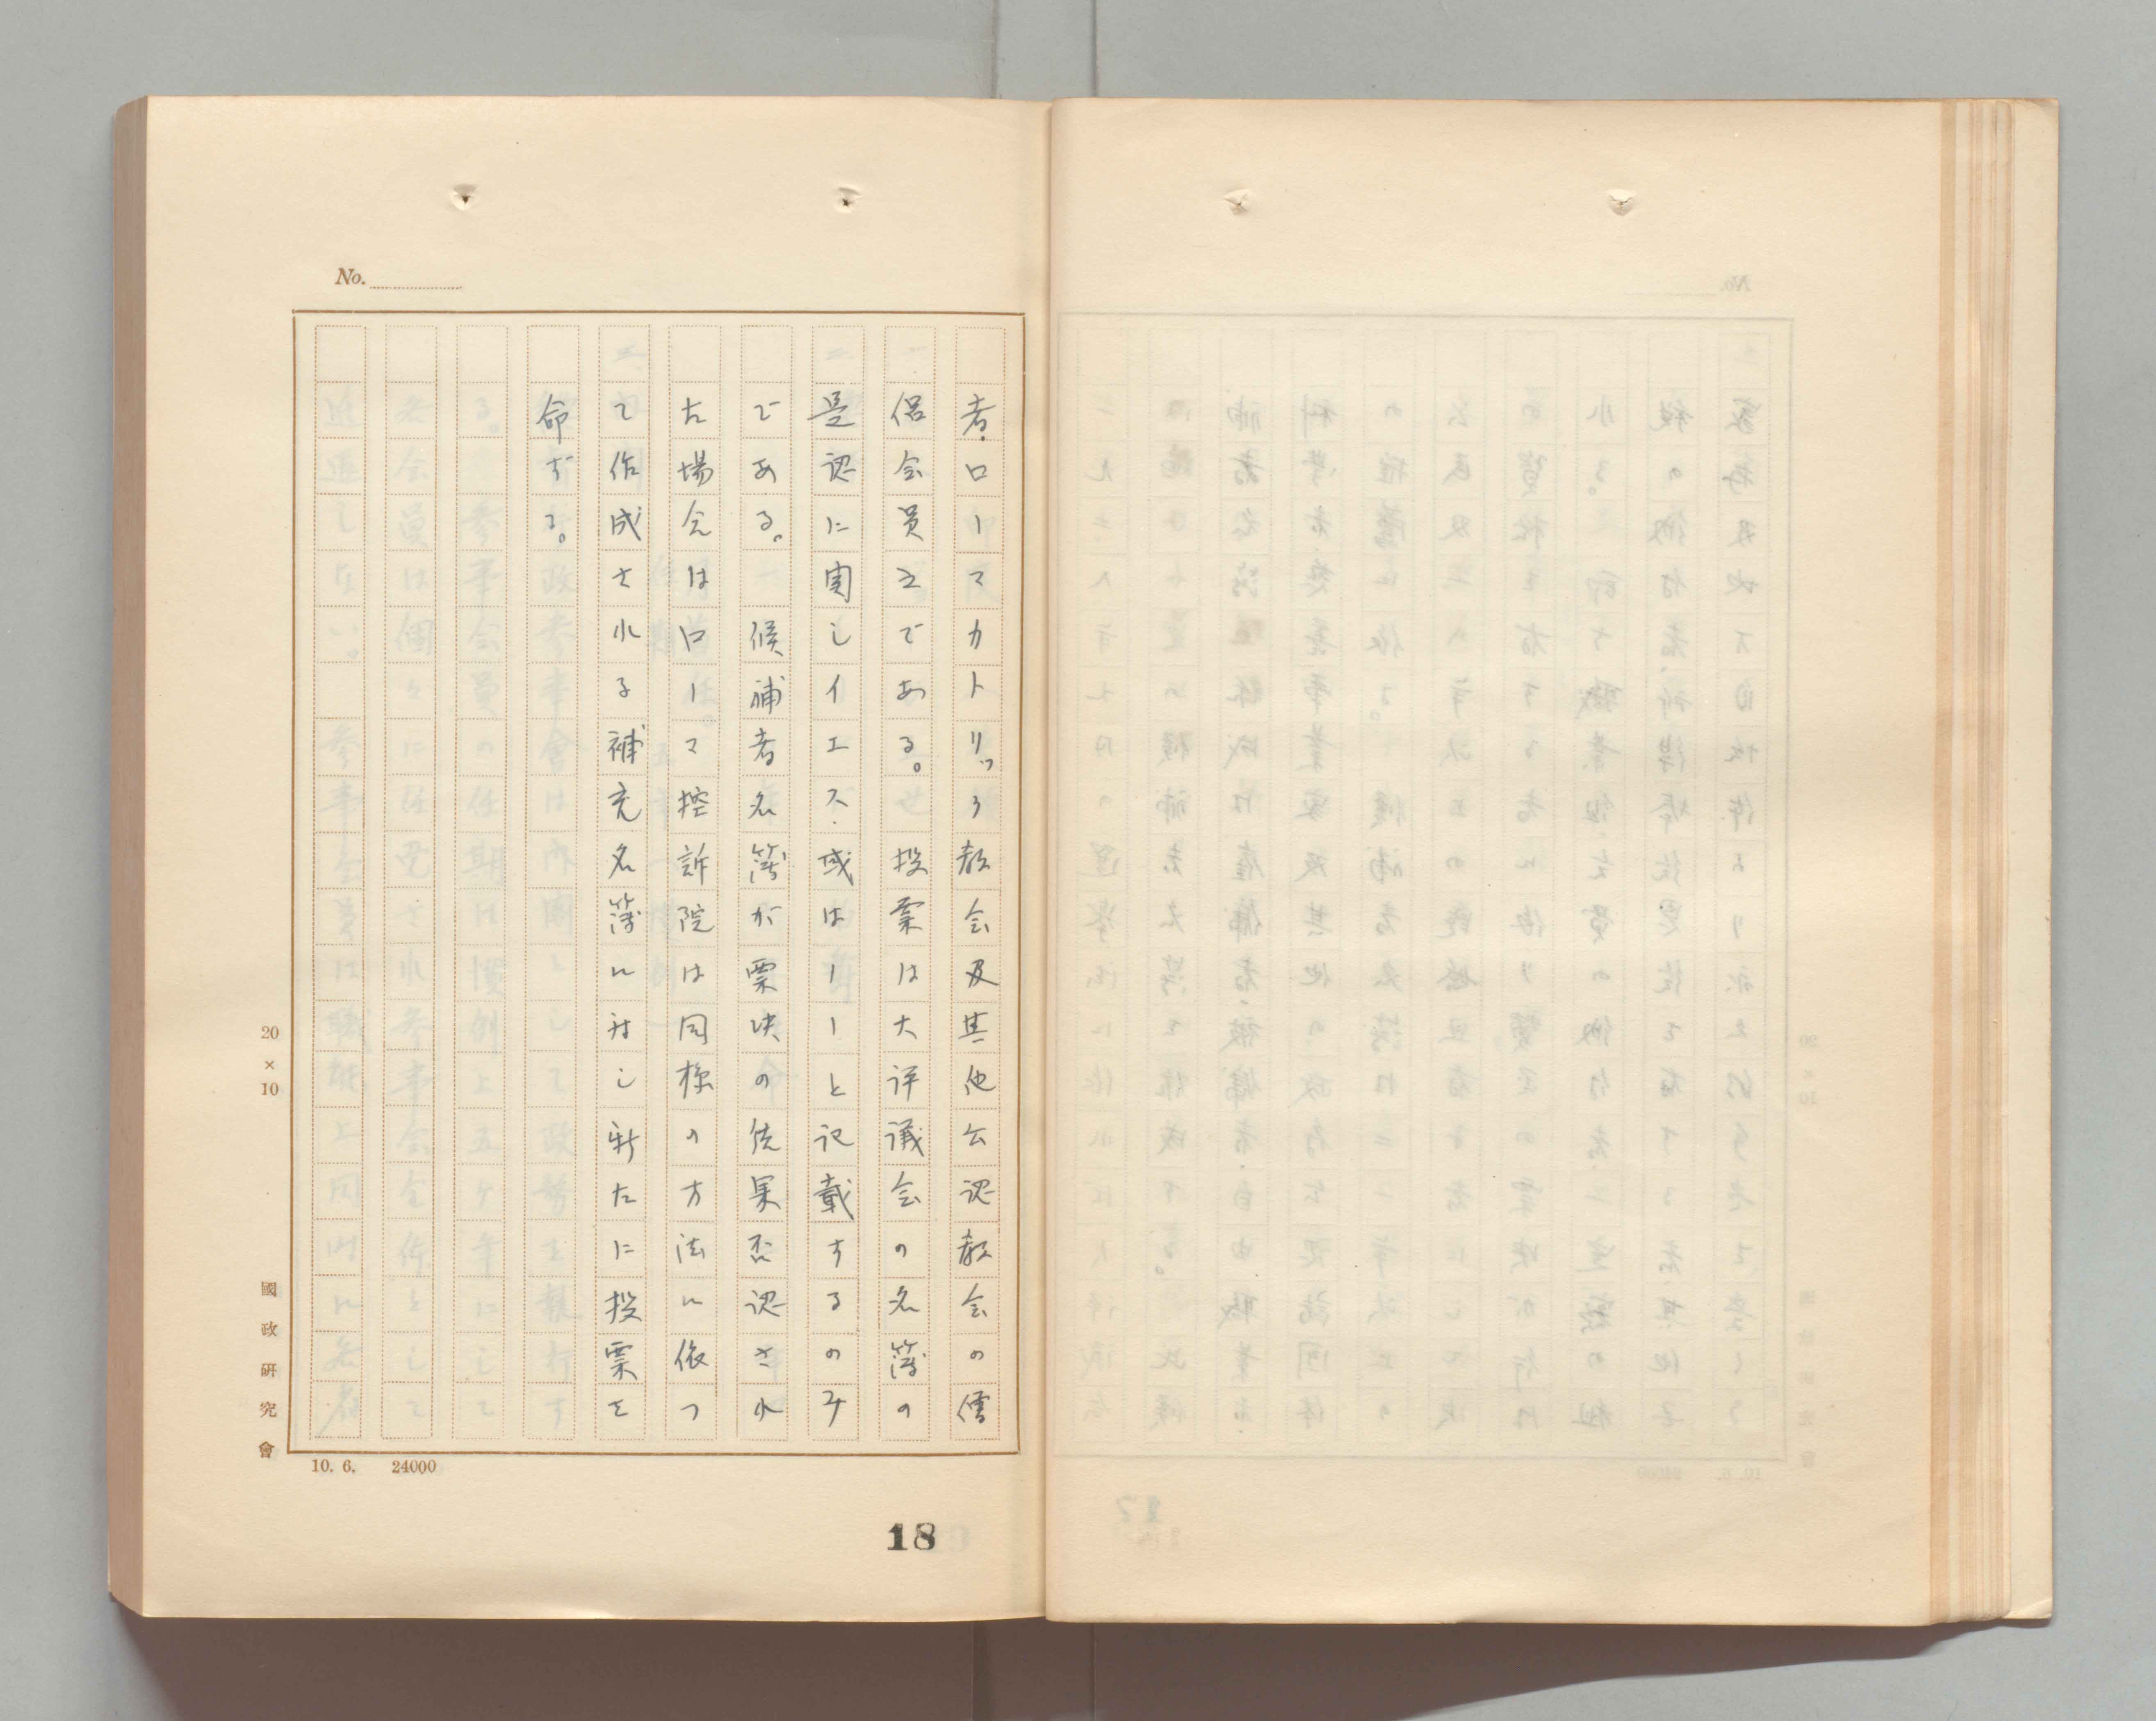 No.
者・ローマカトリック教会及其他公認教会の僧
侶会員之である。投票は大評議会の名簿の
是認に関しイエス・或はノーと記載するのみ
である。 候補者名簿が票決の結果否認され
た場合はローマ控訴院は同様の方法に依つ
て作成される補充名簿に対し新たに投票を
命ずる。
20×10
國政研究會
10. 6. 24000
18